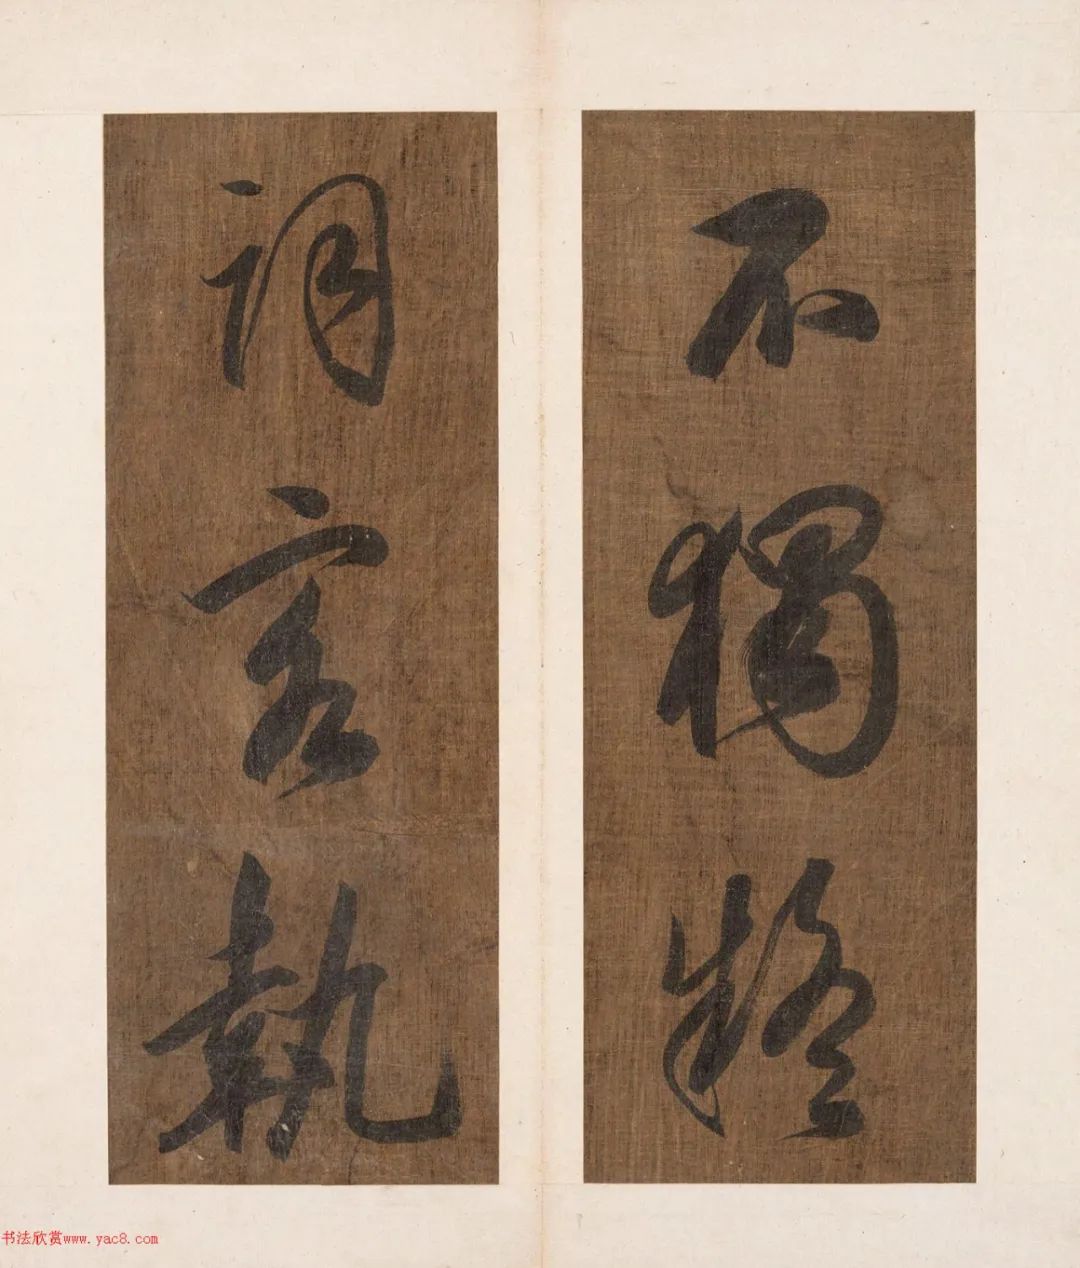 不獨
詞客執
书法欣赏www.yac8.com